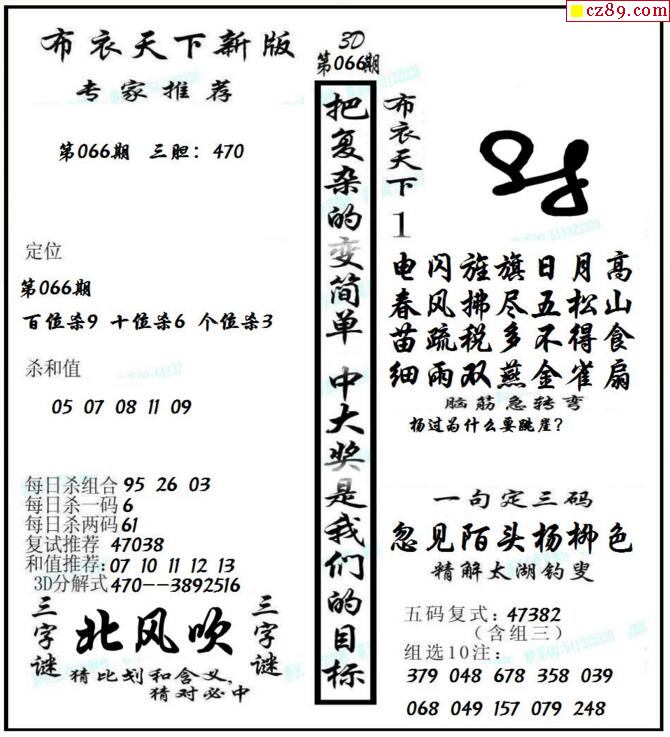 cz89.com
布衣天下新版
专家推荐
第066期 三胆：470
定位
第066期
百位杀9 十位杀6 个位杀3
杀和值
05 07 08 11 09
每日杀组合 95 26 03
每日杀一码 6
每日杀两码 61
复试推荐 47038
和值推荐: 07 10 11 12 13
3D分解式 470--3892516
三字谜
北风吹
三字谜
猜比划和含义,
猜对必中
3D
第066期
把复杂的变简单 中大奖是我们的目标
布衣天下1
电闪旌旗日月高
春风拂尽五松山
苗疏税多不得食
细雨双燕金雀扇
脑筋急转弯
杨过为什么要跳崖？
一句定三码
忽见陌头杨柳色
精解太湖钓叟
五码复式：47382
（含组三）
组选10注：
379 048 678 358 039
068 049 157 079 248